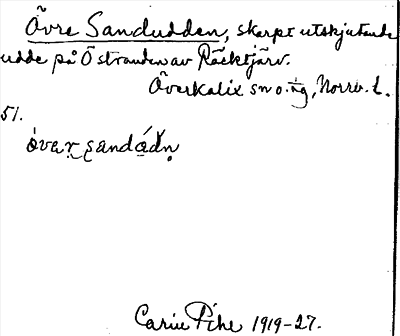 Övre Sandudden, skarpt utskjutande
udde på Östranden av Räcktjärv.
Överkalix sn o. tg, Norrb. l.
51.
Carin Pihl 1919-27.